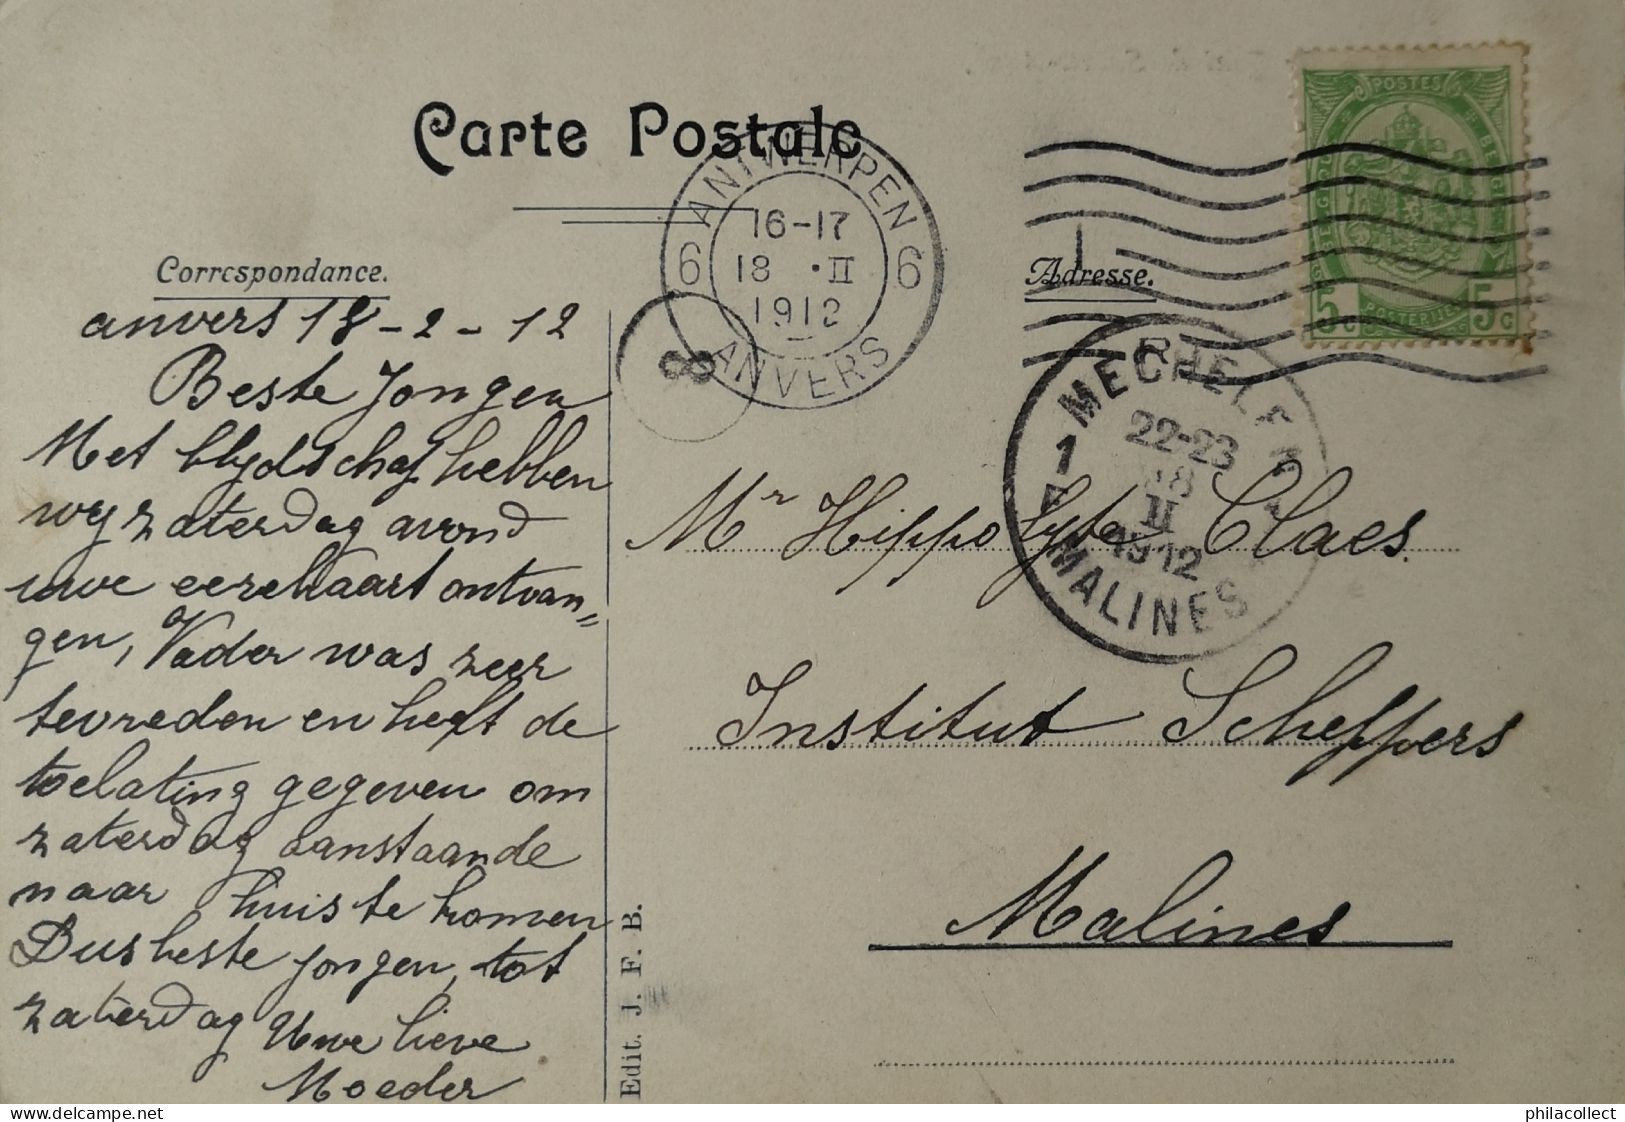 Carte Postale
ANTWERPEN
6 16-17 6
18 · II
1912
ANVERS
8
POSTES
BELGIQUE
BELGIË
5c POSTERIJEN 5c
Correspondance.
Adresse.
MECHELEN
1 22-23
18
II
1912
MALINES
anvers 18-2-12
Beste Jongen
Met blydschap hebben
wy zaterdag avond
uwe eerekaart ontvan=
gen, Vader was zeer
tevreden en heeft de
toelating gegeven om
zaterdag aanstaande
naar huis te komen
Dus beste jongen, tot
zaterdag Uwe lieve
Moeder
Mr Hippolyte Claes.
Institut Scheppers
Malines
Edit. J. F. B.
philacollect